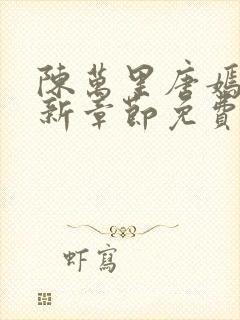 陳萬里唐嫣
新章節免費
虾寫